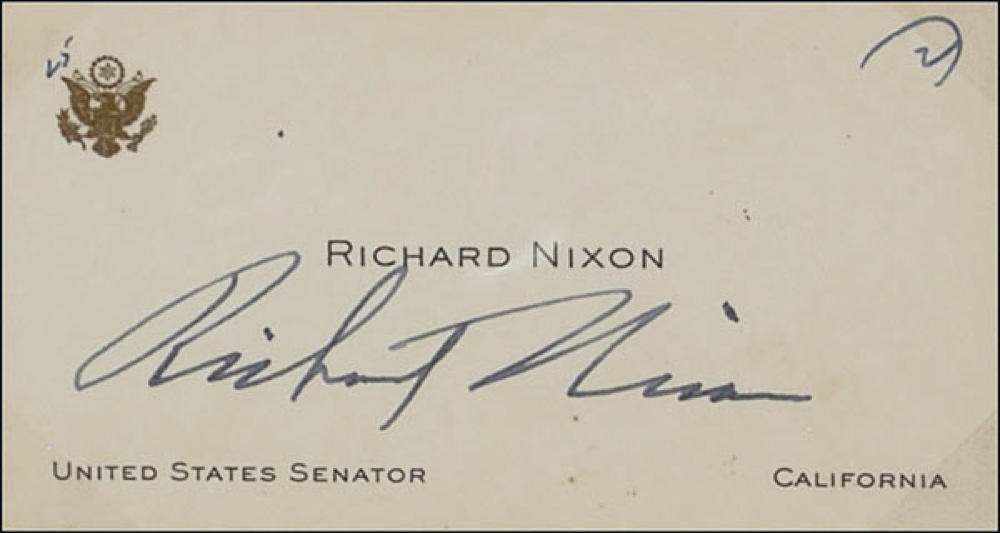 RICHARD NIXON
Richard Nixon
UNITED STATES SENATOR
CALIFORNIA